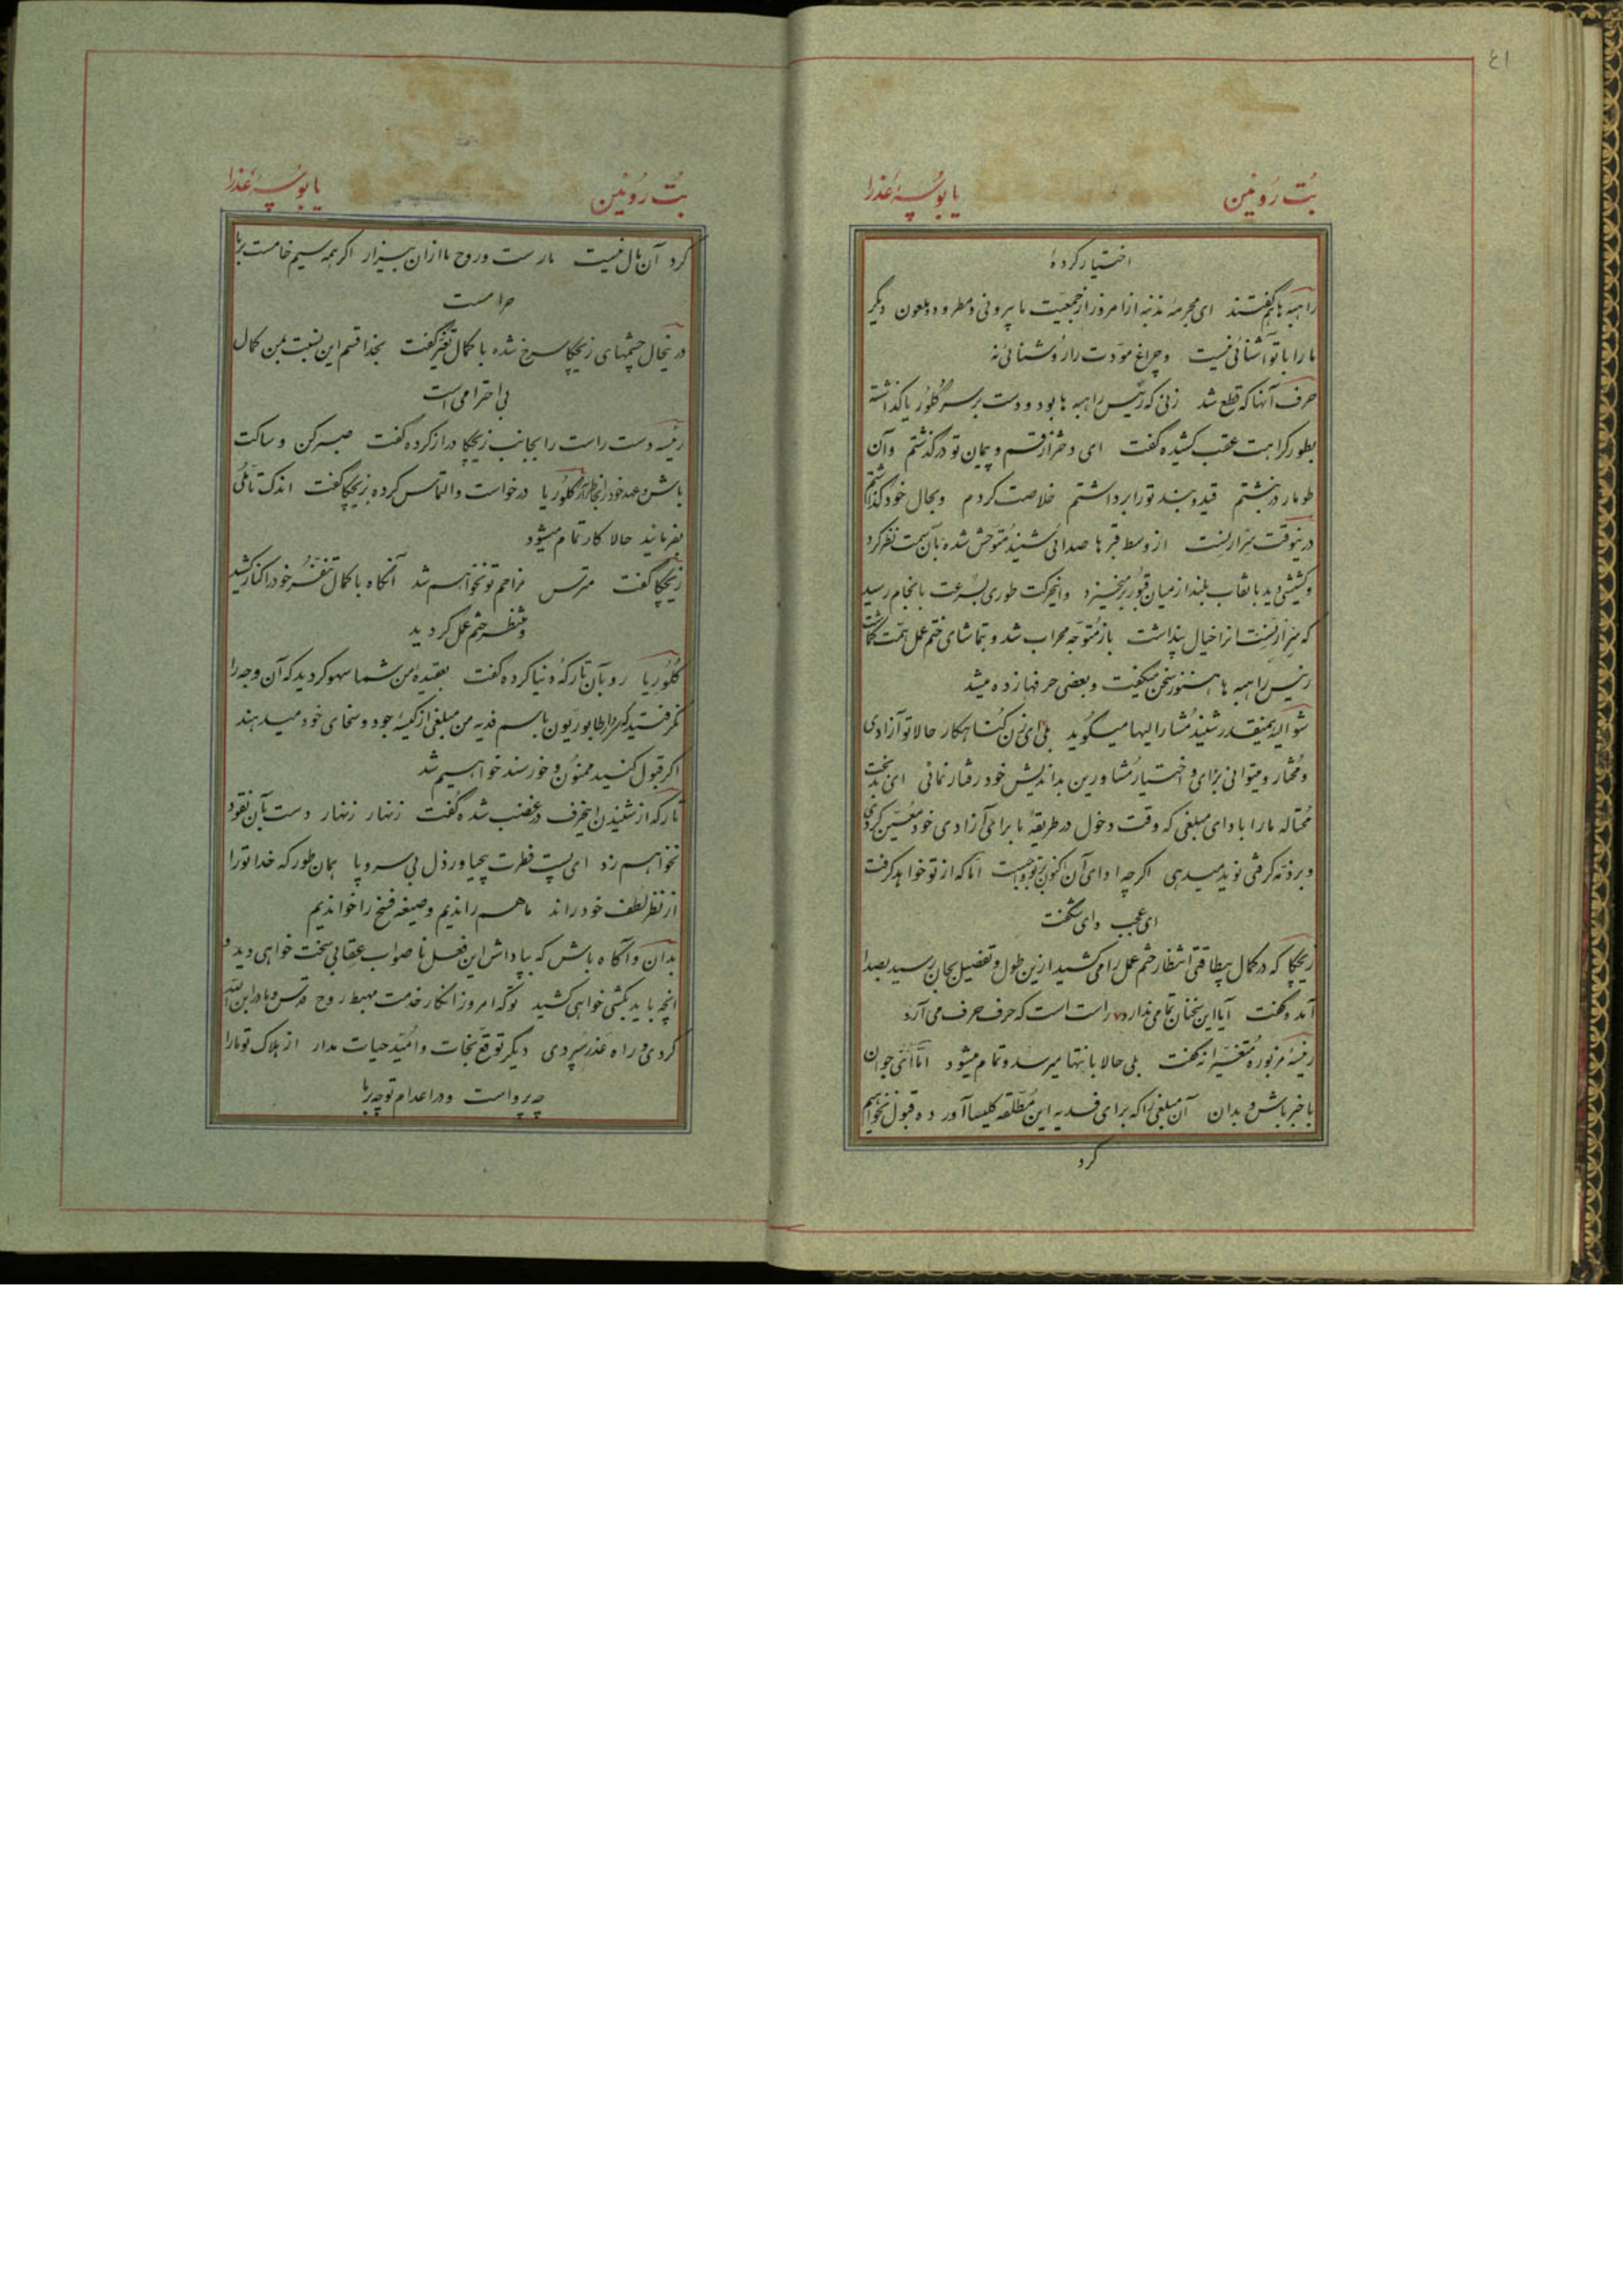 ٤١
بُت رُوئین
یا بوسهٔ عَذرا
اختیار کردهٔ
راهبه‌ها هم گفتند ای مجرمهٔ مذنبه از امروز از جمعیّت ما بیرونی و مطرود و ملعون دیگر
ما را با تو آشنائی نیست و چراغ مودّت را روشنائی نه
حرف آنها که قطع شد زنی که رئیس راهبه ها بود و دست بر سر گلوریا گذاشته
بطور کراهت عقب کشیده گفت ای دختر از قسم و پیمان تو در گذشتم و آن
طومار در نبشتم قید و بند تو را برداشتم خلاصت کردم و بحال خود گذاشتم
درینوقت از وسط قبرها صدائی شنید متوحّش شده بآن سمت نظر کرد
و کشیشی دید با نقاب بلند از میان قبور برمیخیزد و اینحرکت طوری بسرعت بانجام رسید
که انرا خیال پنداشت باز متوجّه محراب شد و بتماشای ختم عمل همّت گماشت
رئیس راهبه ها هنوز سخن میگفت و بعضی حرفها زده میشد
شوالیه همینقدر شنید مشار الیها میگوید بلی ای زن گناهکار حالا تو آزادی
و مختار و میتوانی برای و اختیار مشاورین بداندیش خود رفتار نمائی ای بدبخت
محتاله ما را بادای مبلغی که وقت دخول در طریقهٔ ما برای آزادی خود معیّن کردی
و بر ذمّه گرفتی نوید میدهی اگرچه ادای آن اکنون بر تو واجبست امّا که از تو خواهد گرفت
ای عجب وای شگفت
زیچکا که در کمال بیطاقتی انتظار ختم عمل را میکشید ازین طول و تفصیل بجان رسید بصدا
آمد و گفت آیا این سخنان تمامی ندارد راست است که حرف حرف می آرد
رئیسهٔ مزبوره متغیّرانه گفت بلی حالا بانتها میرسد و تمام میشود امّا ای جوان
با خبر باش و بدان آن مبلغی را که برای فدیه این مطلّقه کلیسا آورده قبول نخواهیم
کرد
بُت رُوئین
یا بوسهٔ عَذرا
کرد آن مال نیست مار ست و روح ما ازان بیزار اگر همه سیم خامست بر ما
حرامست
درینحال چشمهای زیچکا سرخ شده با کمال تغیّر گفت بخدا قسم این نسبت بمن کمال
بی احترامی است
رئیسه دست راست را بجانب زیچکا دراز کرده گفت صبر کن و ساکت
باش و عهد خود را گلوریا درخواست و التماس کرده بزیچکا گفت اندک تأمّلی
بفرمائید حالا کار تمام میشود
زیچکا گفت مترس مزاحم تو نخواهم شد آنگاه با کمال تنفّر خود را کنار کشید
و منتظر ختم عمل گردید
گلوریا رو بآن تارکهٔ دنیا کرده گفت بعقیدهٔ من شما سهو کردید که آن وجه را
نگرفتید باسم فدیه من مبلغی از کیسهٔ جود و سخای خود میدهند
اگر قبول کنید ممنون و خورسند خواهیم شد
تارکه از شنیدن اینحرف در غضب شده گفت زنهار زنهار دست بآن نقود
نخواهم زد ای پست فطرت بیحیا و رذل بی سر و پا همان طور که خدا تو را
از نظر لطف خود راند ما هم راندیم و صیغه فسخ را خواندیم
بدان و آگاه باش که بپاداش این فعل ناصواب عقابی سخت خواهی دید و
آنچه باید بکشی خواهی کشید تو که امروز انکار خدمت مهبط روح قدس و مادر ابن الله
کردی و راه غدر سپردی دیگر توقّع نجات و امّید حیات مدار از هلاک تو ما را
چه پرواست و در اعدام تو چه بر ما